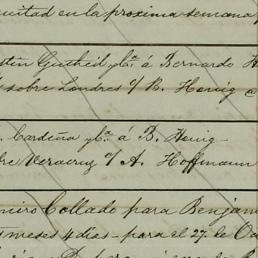 cuitad en la proxima semana
stin Gutheil y Ca. á Bernardo H
sobre Londres o/ R. Henig @
. Cardeña y Ca. á B. Henig
re Veracruz o/ A. Hoffmann
miro Collado para Benjam
meses 4 dias - para el 27. de Oc